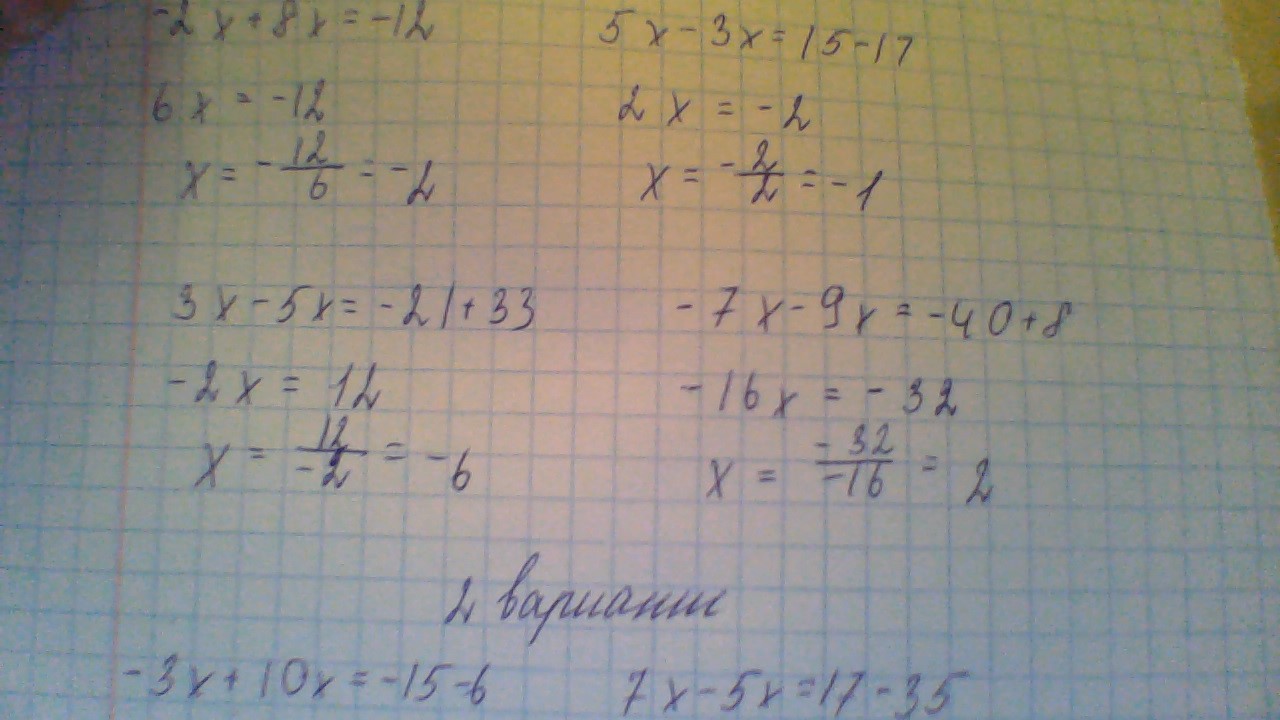 -2x+8x=-12 5x-3x=15-17
6x=-12 2x=-2
x=-12/6=-2 x=-2/2=-1
3x-5x=-21+33 -7x-9x=-40+8
-2x=12 -16x=-32
x=12/-2=-6 x=-32/-16=2
2 вариант
-3x+10x=-15-6 7x-5x=17-35